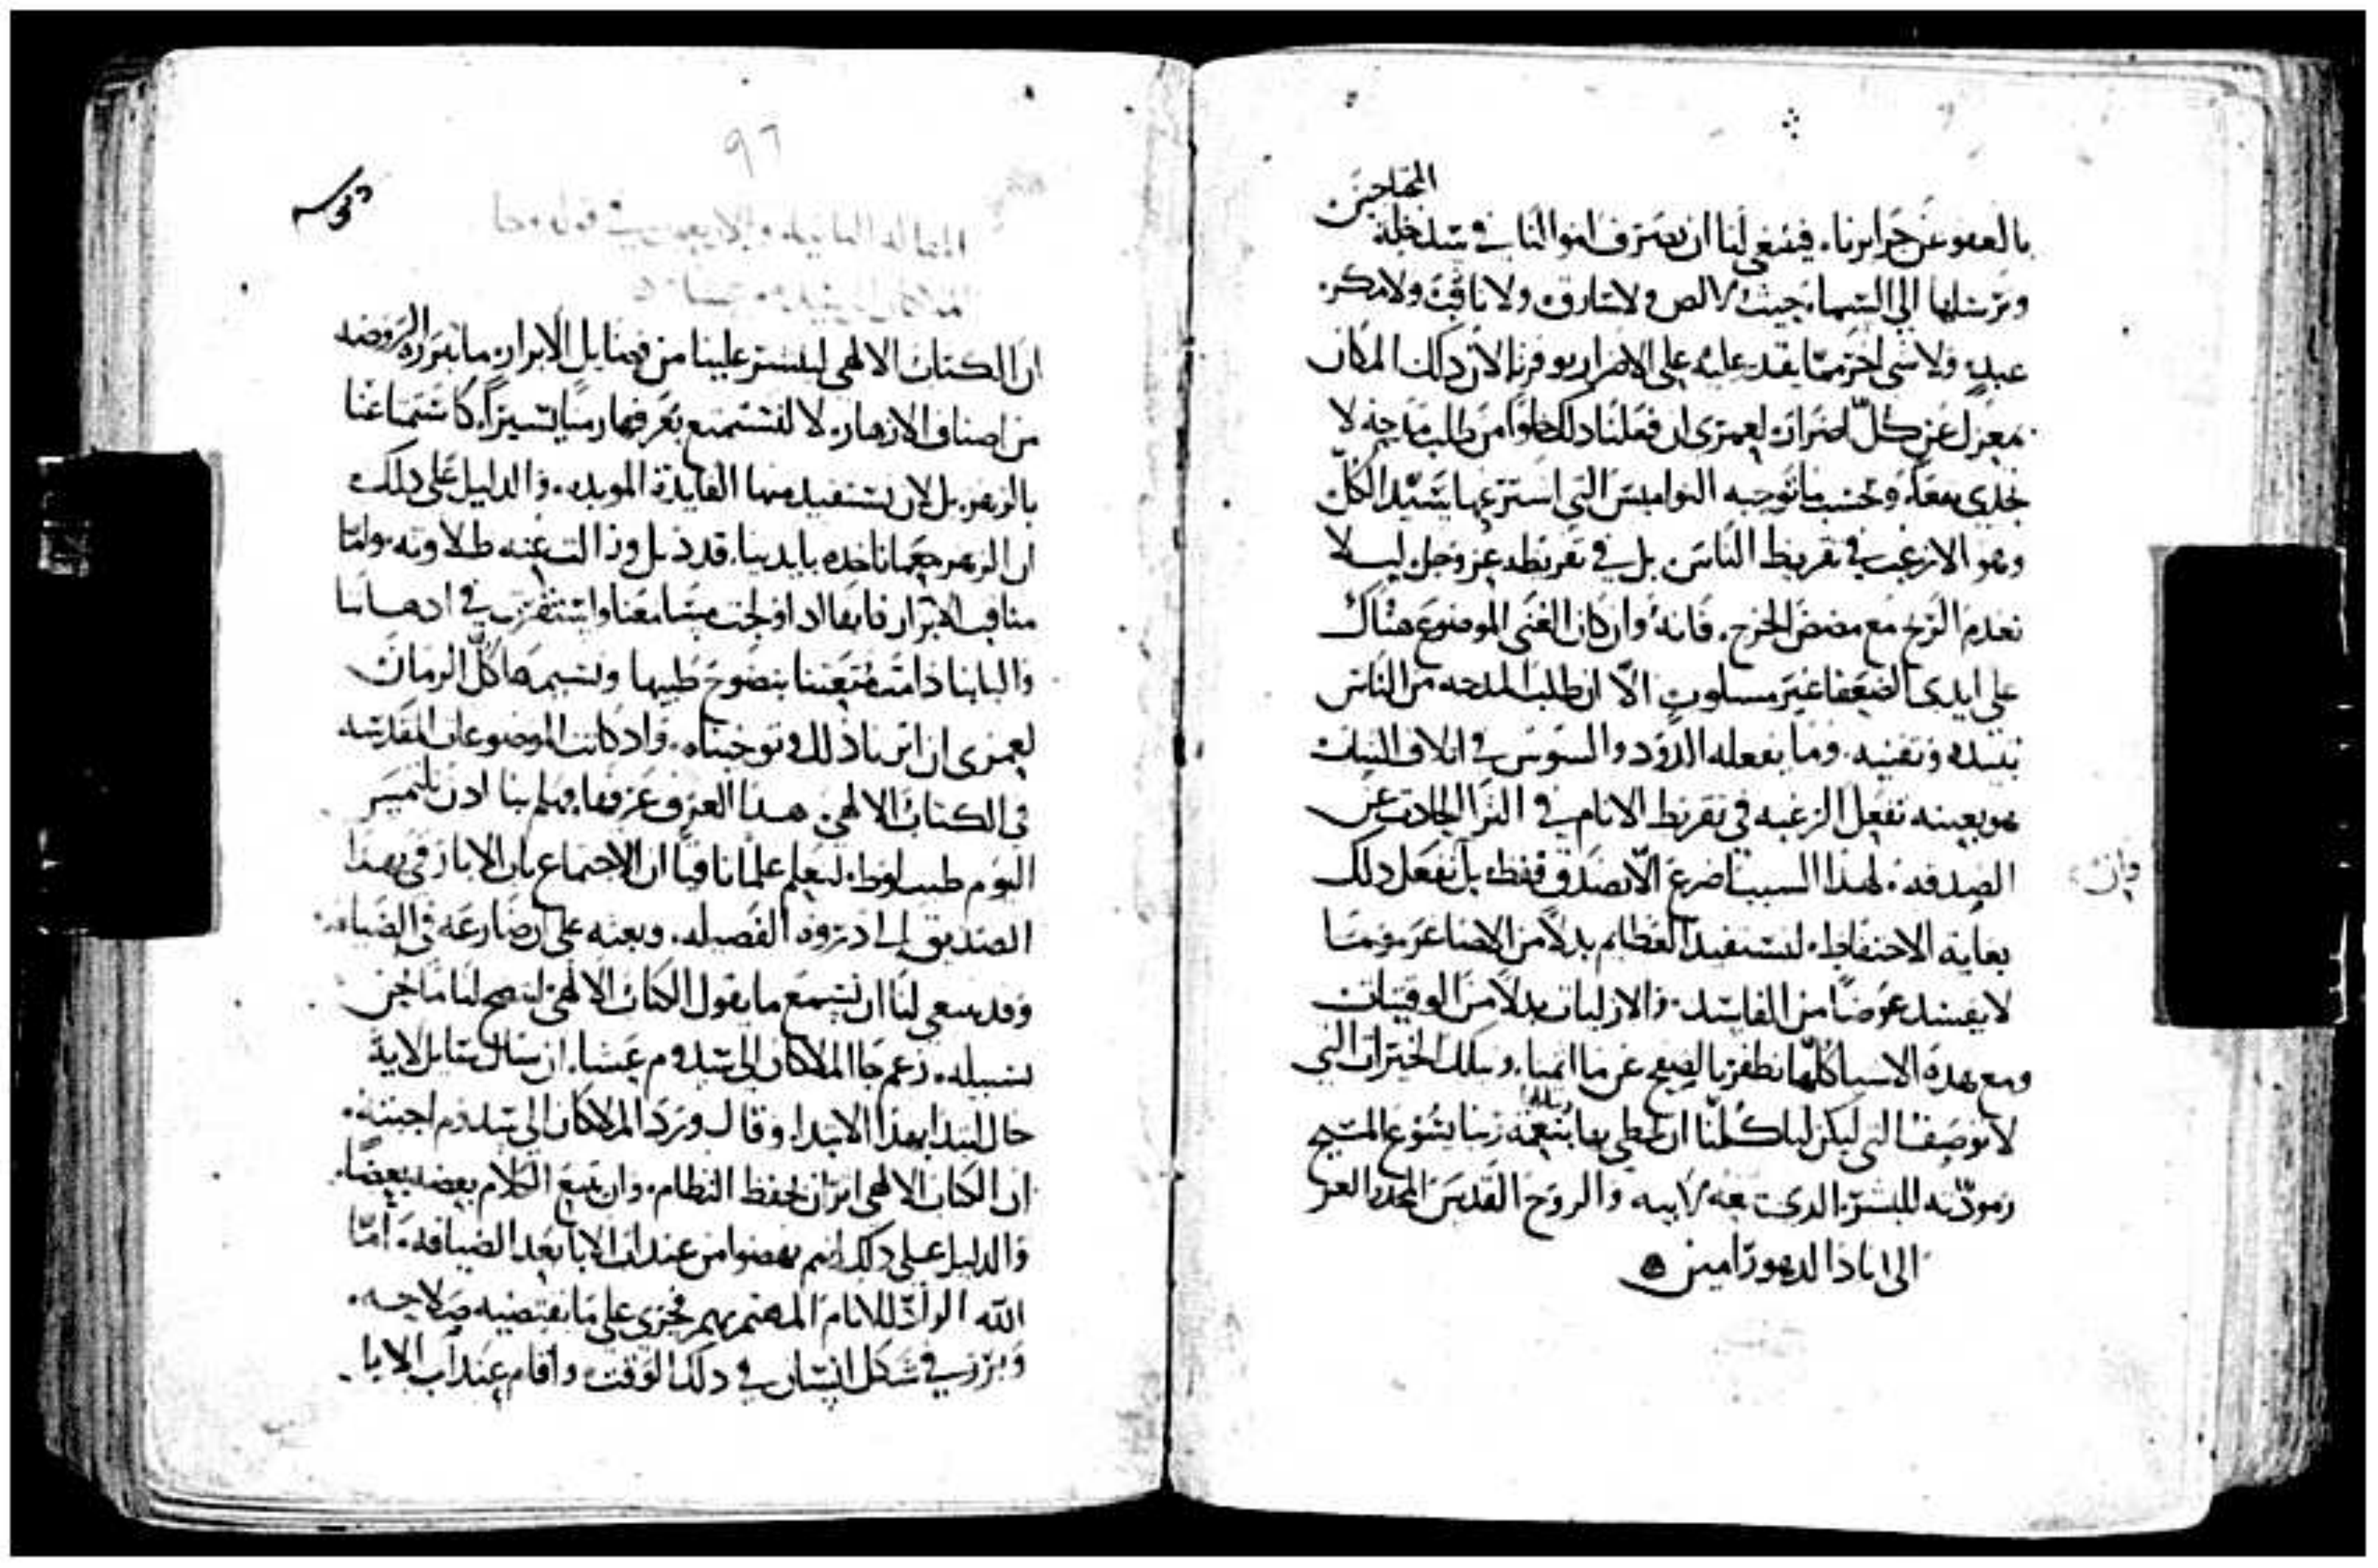 المحتاجين
بالعفو عن جرايرنا. فينبغي لنا ان نصرف اموالنا في سد خلة
ونرسلها الى السماء حيث لا لص ولا سارق ولا ناقب ولا مكر.
عبد ولا شي اخر مما يقدر عليه على الاضرار بوفرنا لان ذلك المكان
بمعزل عن كل اضرار. لعمري ان فعلنا ذلك خلوا من طلب مدحه لا
تجدي نفعا. وبحسب ما توجبه النواميس التي اشترعها سيد الكل
وهو الا نرغب في تقريظ الناس بل في تقريظه عز وجل ليلا
نعدم الربح مع مضض الخرج. فانه وان كان الغنى الموضوع هناك
على ايدي الضعفا غير مسلوب الا ان طلب المدحه من الناس
تفسده وتفنيه. وما يفعله الدود والسوس في اتلاف الثياب
هو بعينه تفعل الرغبه في تقريظ الانام في الثرا الحادث عن
الصدقه. لهذا السبب اضرع الا نصدق فقط بل نفعل ذلك
بغاية الاحتفاظ. لنستفيد العظايم بدلا من الاصاغر وما
لا يفسد عوضا من الفاسد. والازليات بدلا من الوقتيات
ومع هذه الاشيا كلها نظفر بالصفح عن ماثمنا. وبتلك الخيرات التي
لا توصف التي ليكن لنا كلنا ان نحظى بها بنعمة ربنا يسوع المسيح
ومودته للبشر. الذي معه لابيه والروح القدس المجد والعز
الى اباد الدهور امين
٩٦
المقاله
ان الكتاب الالهي لينشر علينا من فضايل الابرار. ما تبرزه الروضه
من اصناف الازهار. لا لنستمتع بعرفها زمنا يسيرا كاستمتاعنا
بالزهر. بل لان نستفيد منها الفايدة الموبده. والدليل على ذلك
ان الزهر حينما ناخذه بايدينا. قد ذبل وزالت عنه طلاوته. واما
مناقب الابرار فانها اذا ولجت مسامعنا واستقرت في اذهاننا
والبابنا دامت متعتنا بنضوح طيبها ونسيمها كل الزمان
لعمري ان اثرنا ذلك وتوخيناه. واذ كانت الموضوعات المقدسه
في الكتاب الالهي هذا العرف عرفها. فهلم بنا اذن نلتمس
اليوم طيب لوط. لنعلم علما نافيا ان الاجتماع باب الابا رقى بهذا
الصديق الى ذروة الفضيله. وبعثه على ان ضارعه في الضيافه.
وقد ينبغي لنا ان نسمع ما يقول الكتاب الالهي ليصح لنا ما نحن
بسبيله. زعم جا الملاكان الى سدوم عشيا. ان سال سايل لاية
حال ابتدا بهذا الابتدا. وقال وورد الملاكان الى سدوم اجبته.
ان الكتاب الالهي اثر ان يحفظ النظام. وان يتبع الكلام بعضه بعضا.
والدليل على ذلك انهم نهضوا من عند اب الابا بعد الضيافه. اما
الله الواد للانام المهتم بهم فجرى على ما تقتضيه صلاحيته.
وبرز في شكل انسان في ذلك الوقت واقام عند اب الابا.